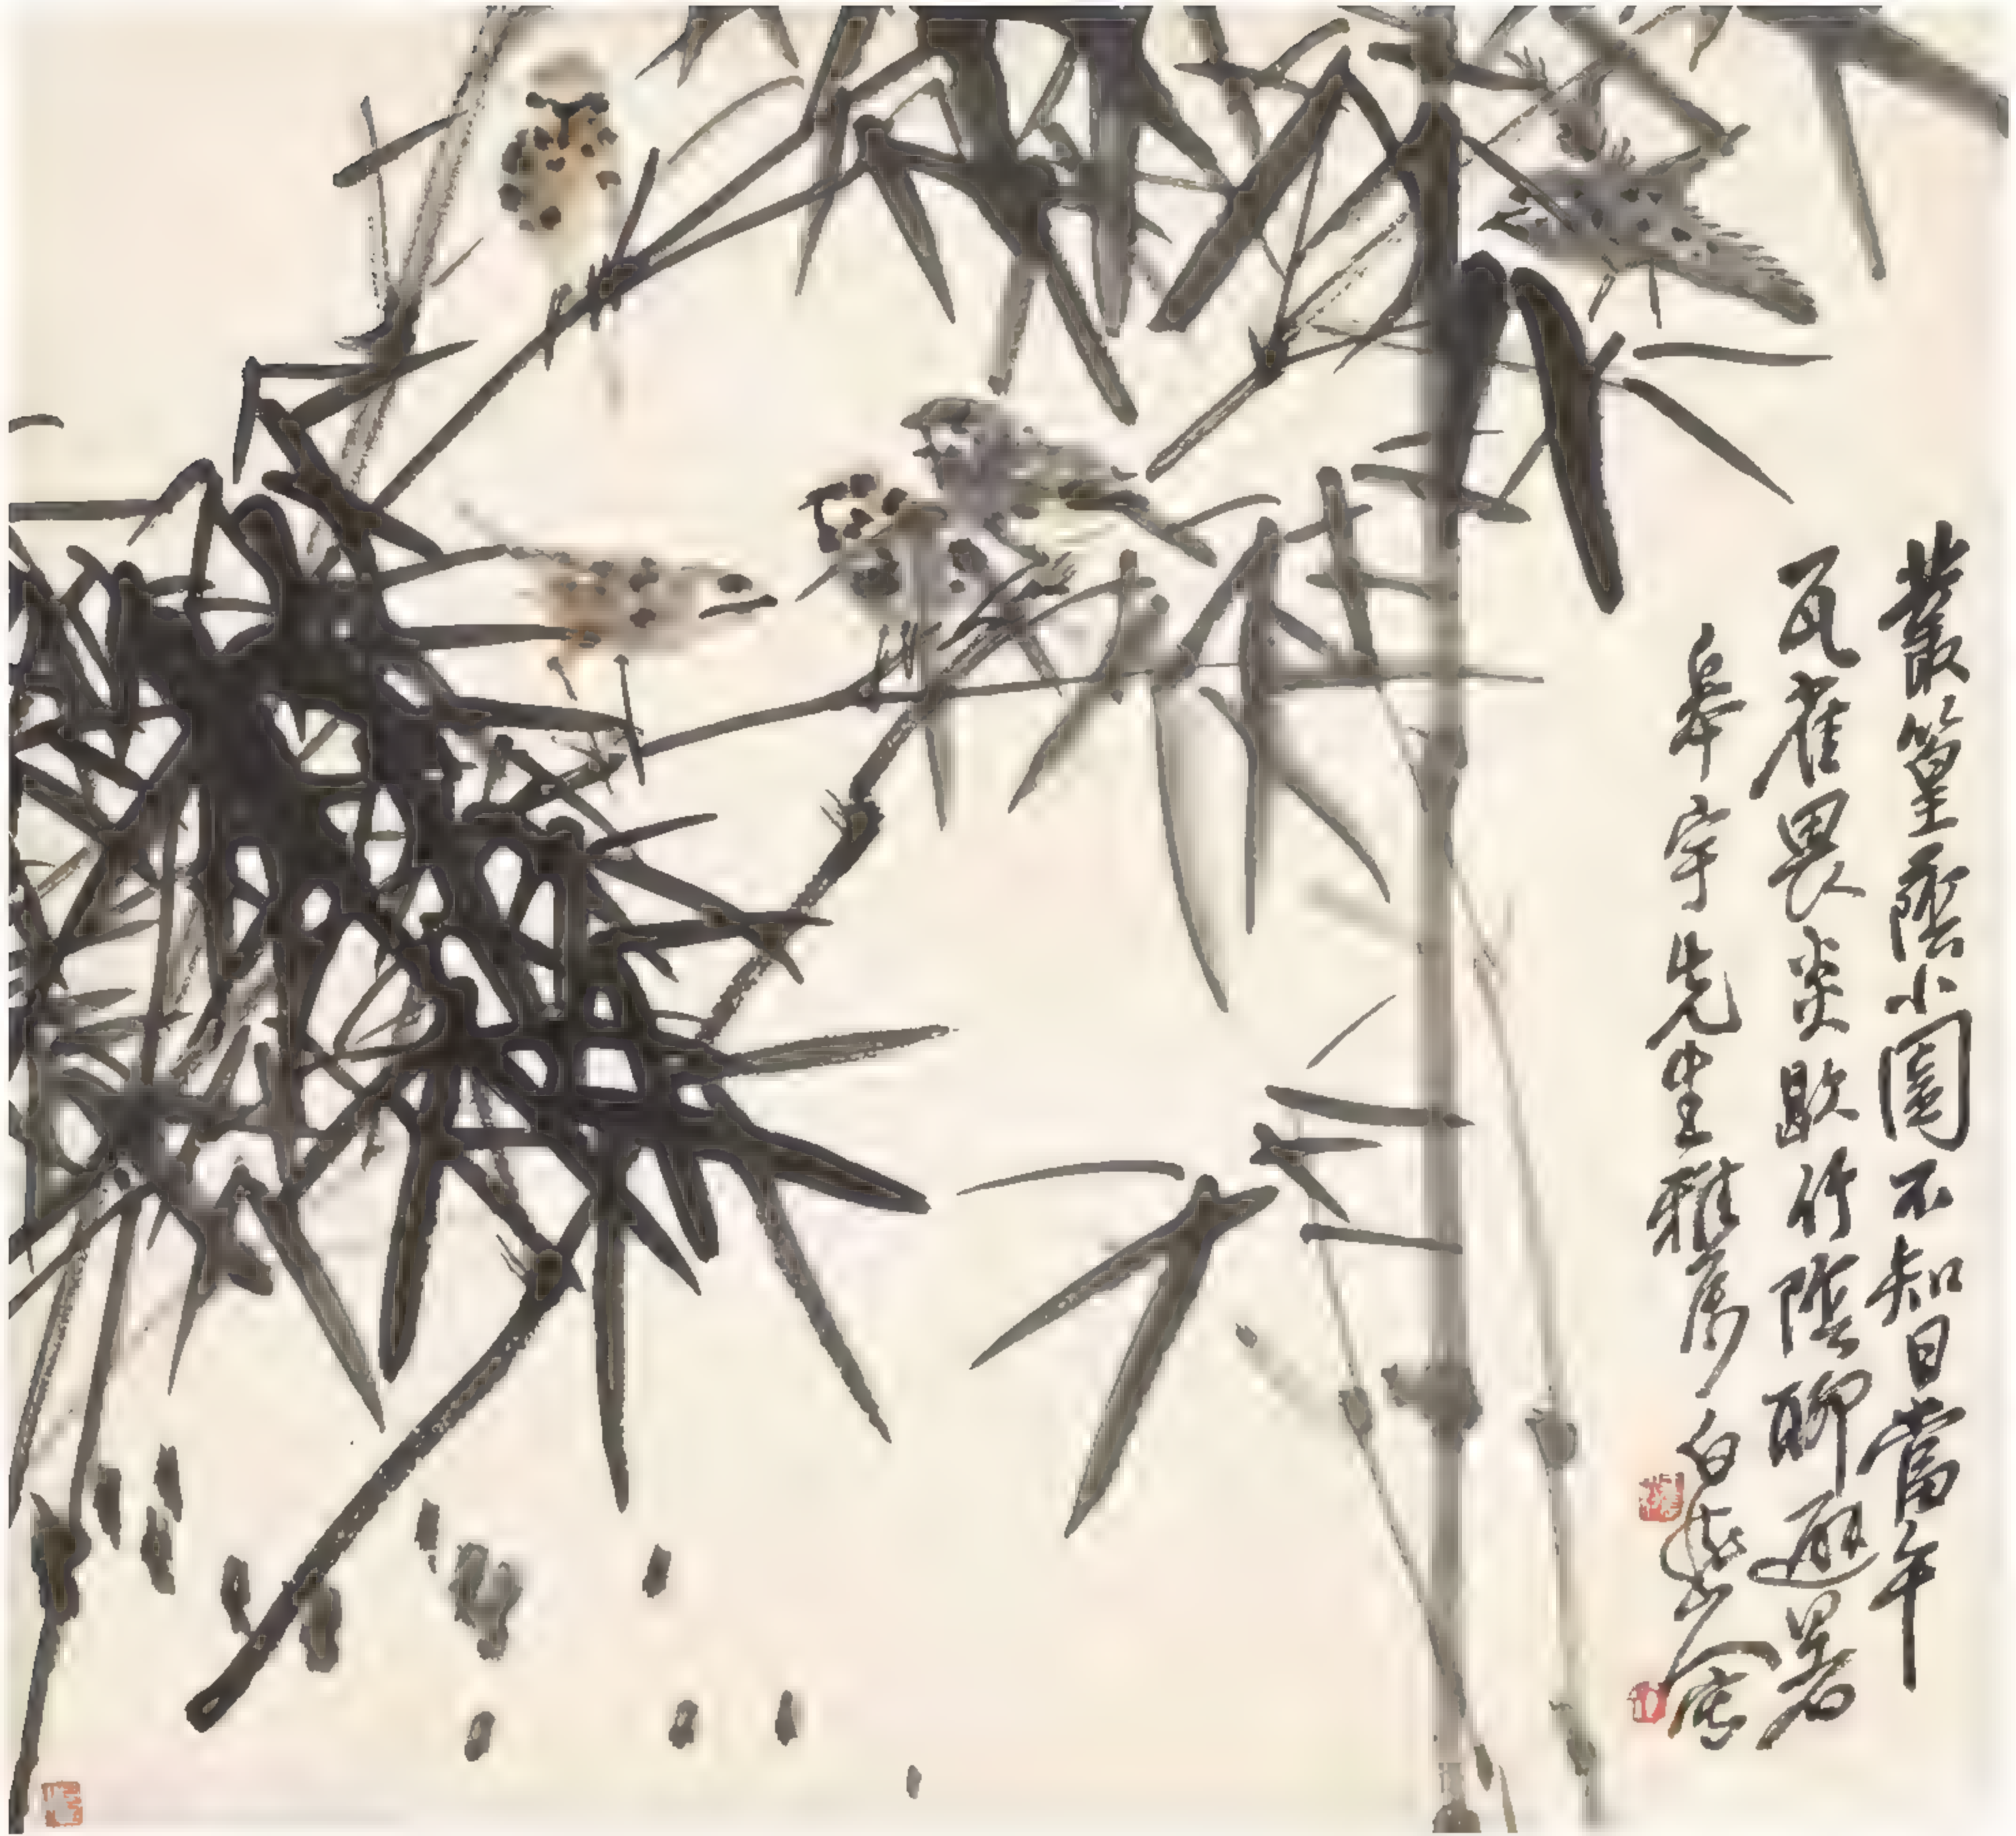 叢篁廕小園不知日當午
瓦雀畏炎歊竹陰聊避暑
皋宇先生雅屬 白龍山人震